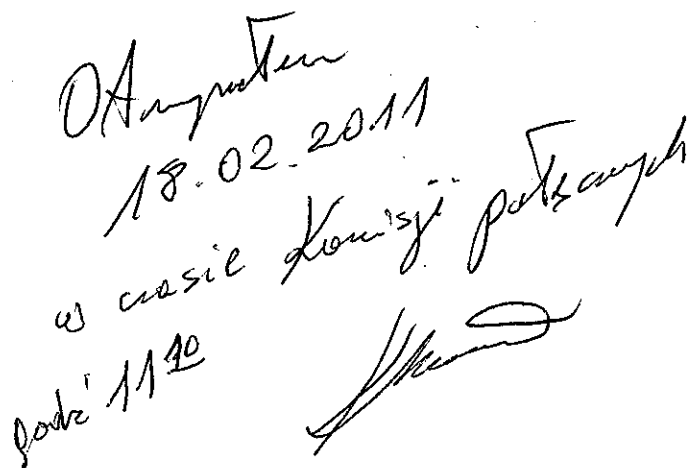 Otrzymałem
18.02.2011
w czasie Komisji połączonych
godz 11 10